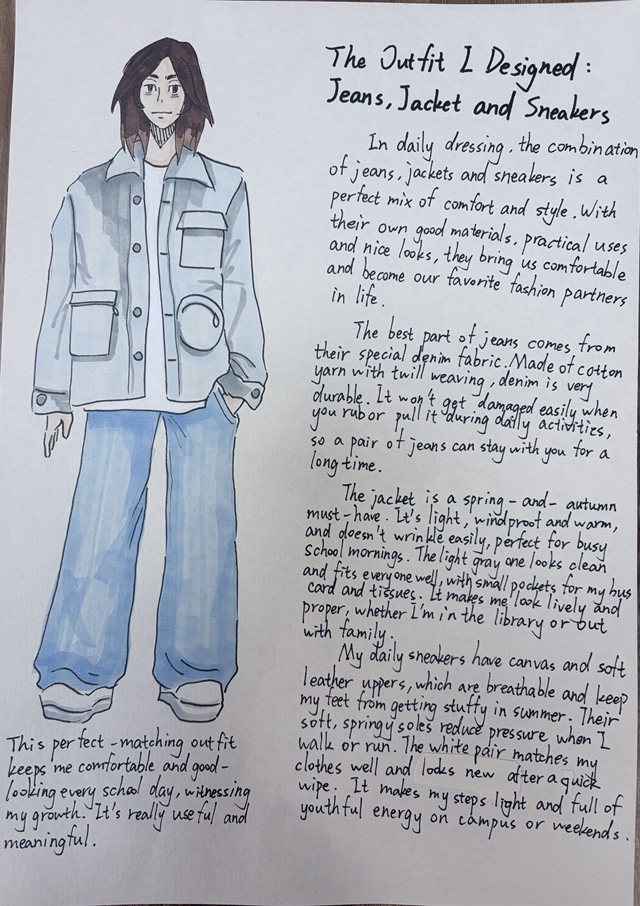 The Outfit I Designed:
Jeans, Jacket and Sneakers
In daily dressing, the combination
of jeans, jackets and sneakers is a
perfect mix of comfort and style. With
their own good materials, practical uses
and nice looks, they bring us comfortable
and become our favorite fashion partners
in life.
The best part of jeans comes from
their special denim fabric. Made of cotton
yarn with twill weaving, denim is very
durable. It won't get damaged easily when
you rub or pull it during daily activities,
so a pair of jeans can stay with you for a
long time.
The jacket is a spring-and-autumn
must-have. It's light, windproof and warm,
and doesn't wrinkle easily, perfect for busy
school mornings. The light gray one looks clean
and fits everyone well, with small pockets for my bus
card and tissues. It makes me look lively and
proper, whether I'm in the library or out
with family.
My daily sneakers have canvas and soft
leather uppers, which are breathable and keep
my feet from getting stuffy in summer. Their
soft, springy soles reduce pressure when I
walk or run. The white pair matches my
clothes well and looks new after a quick
wipe. It makes my steps light and full of
youthful energy on campus or weekends.
This perfect-matching outfit
keeps me comfortable and good-
looking every school day, witnessing
my growth. It's really useful and
meaningful.